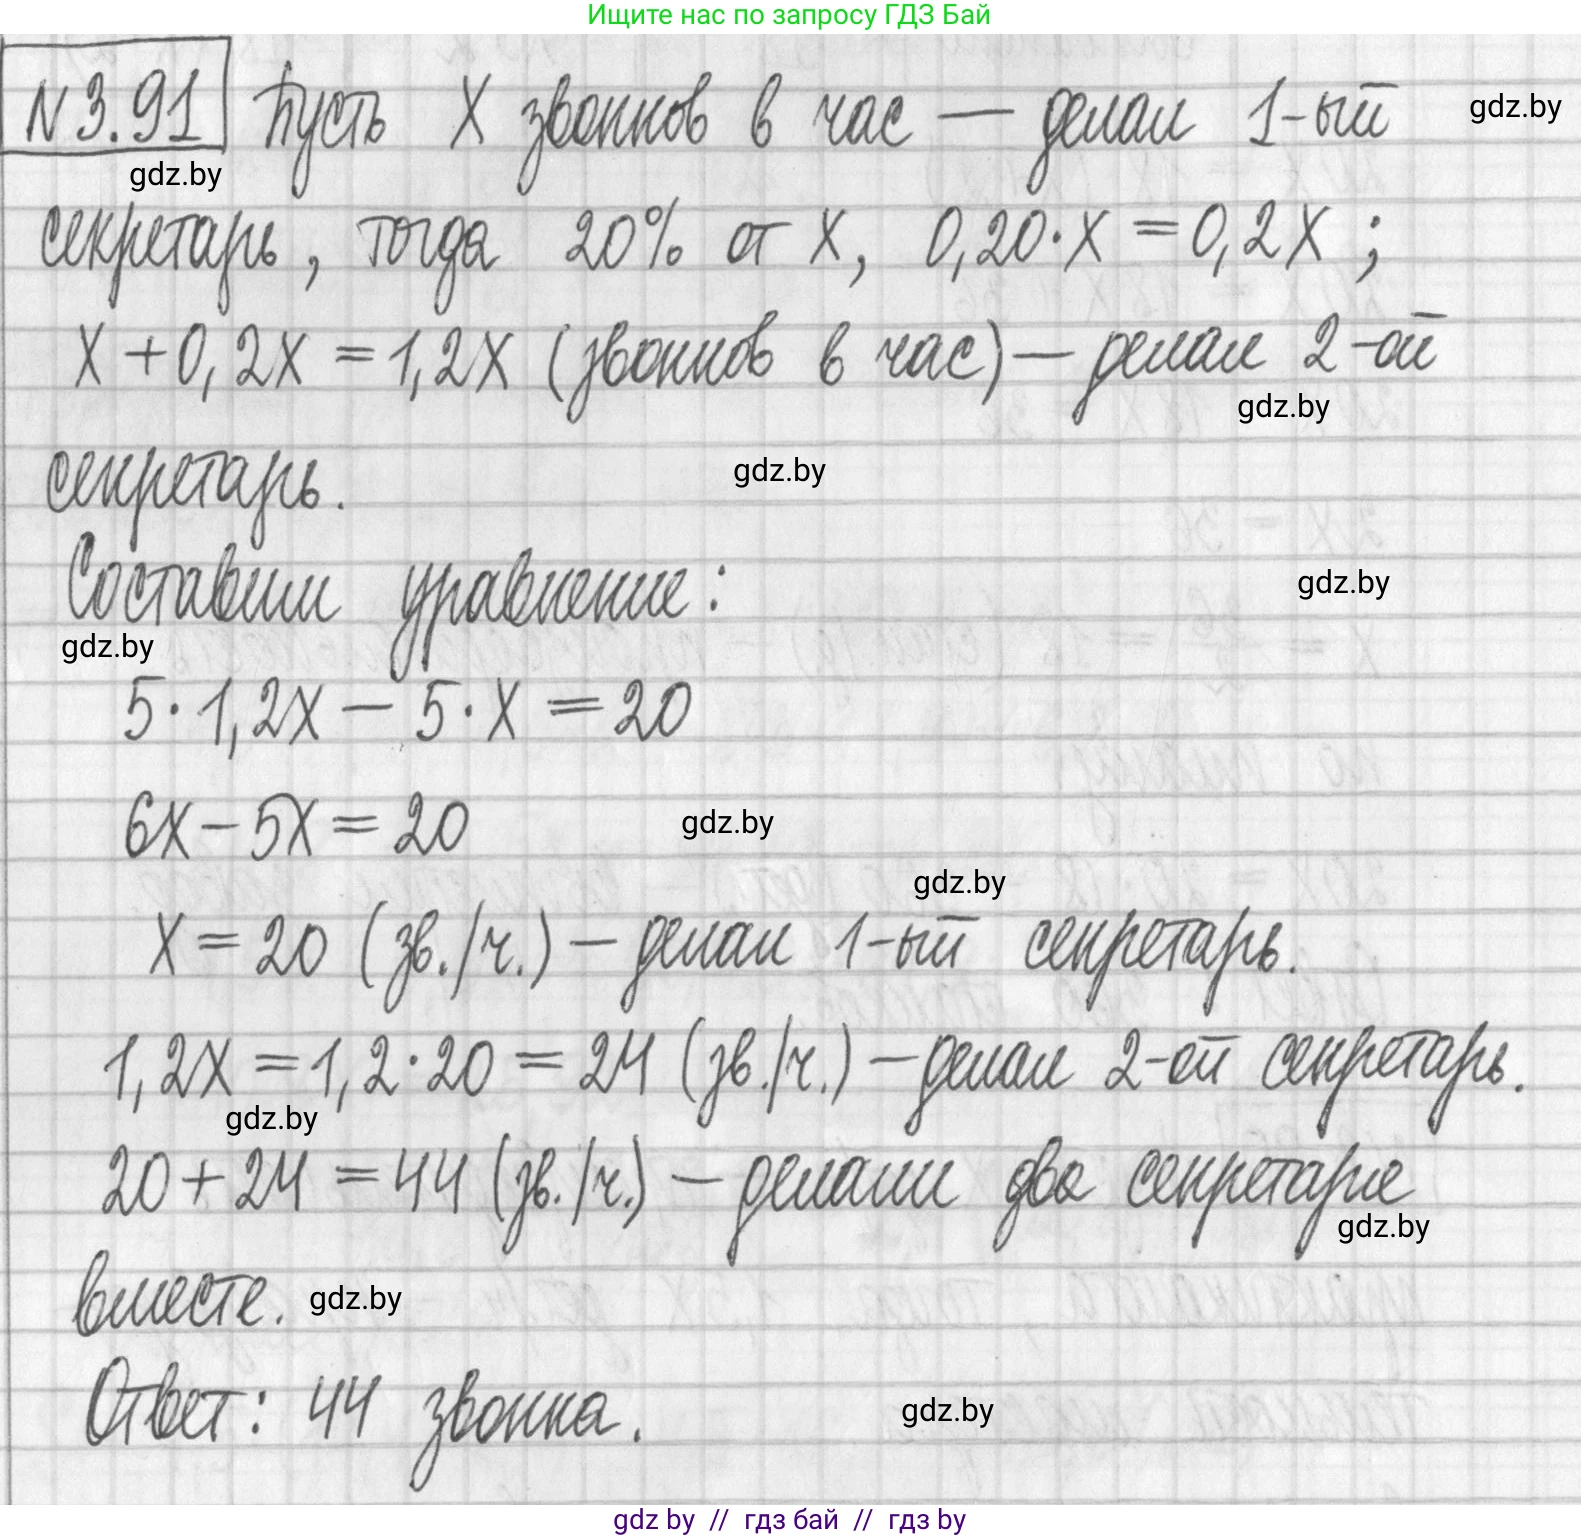 Ищите нас по запросу ГДЗ Бай
N 3.91 Пусть X звонков в час — делал 1-ый gdz.by
gdz.by
секретарь, тогда 20% от X, 0,20·X = 0,2X ;
X + 0,2X = 1,2X (звонков в час) — делал 2-ой
gdz.by
секретарь. gdz.by
Составим уравнение: gdz.by
gdz.by
5·1,2X — 5·X = 20
6X – 5X = 20 gdz.by
gdz.by
X = 20 (зв./ч.) — делал 1-ый секретарь.
1,2X = 1,2·20 = 24 (зв./ч.) — делал 2-ой секретарь.
gdz.by
20 + 24 = 44 (зв./ч.) — делали два секретаря
gdz.by
вместе. gdz.by
Ответ: 44 звонка. gdz.by
gdz by // гдз бай // гдз by